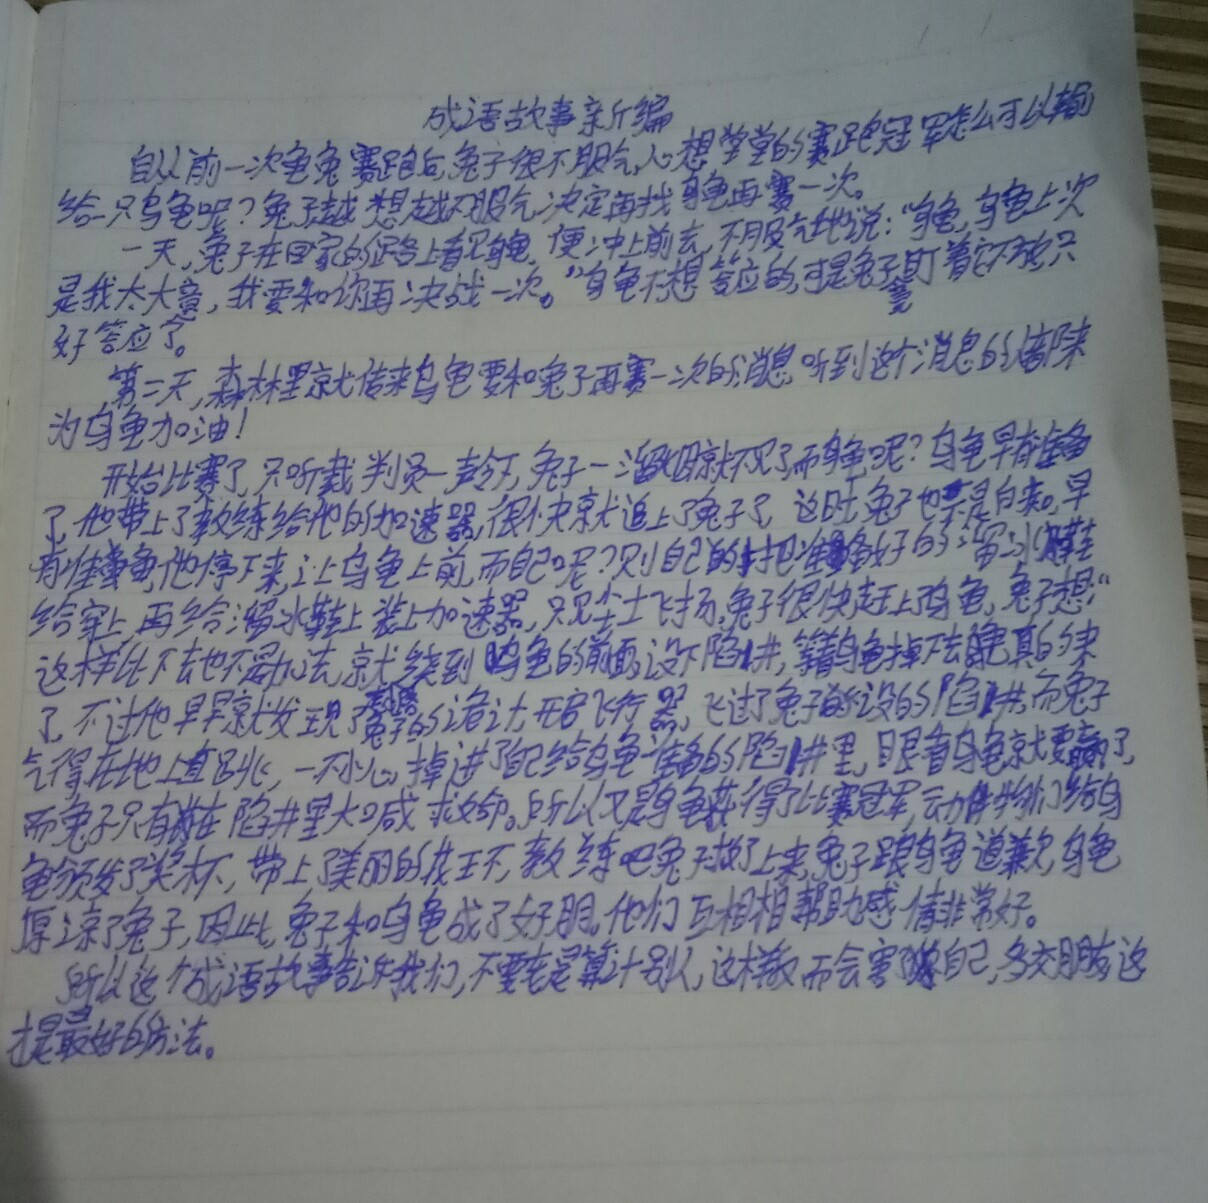 成语故事新编
自从前一次龟兔赛跑后,兔子很不服气,心想堂堂的赛跑冠军怎么可以输
给一只乌龟呢?兔子越想越不服气,决定再找乌龟再赛一次。
一天,兔子在回家的路上看见乌龟,便冲上前去,不服气地说:“乌龟,乌龟上次
是我太大意,我要和你再决战一次。”乌龟不想答应的,可是兔子盯着它不放只
好答应了。
第二天,森林里就传来乌龟要和兔子再赛一次的消息,听到这个消息的都来
为乌龟加油!
开始比赛了,只听裁判员一声令下,兔子一溜烟就不见了而乌龟呢?乌龟早有准备
了,他带上了教练给他的加速器,很快就追上了兔子了,这时兔子也是有备。早
有准备,他停下来,让乌龟上前,而自己呢?则自己把准备好的溜冰鞋
给穿上,再给溜冰鞋上装上加速器,只见尘土飞扬,兔子很快赶上乌龟,兔子想:“
这样比下去也不是办法,就绕到乌龟的前面,设下陷井,等着乌龟掉下去乌龟真的来
了,不过他早早就发现了兔子的诡计,开启飞行器,飞过了兔子所设的陷井,而兔子
气得在地上直跳,一不小心,掉进了自己给乌龟准备的陷井里,眼看乌龟就要赢了,
而兔子只有在陷井里大喊救命。所以又是乌龟获得了比赛冠军,动物们给乌
龟颁发了奖杯,带上了美丽的花环,教练吧兔子救了上来,兔子跟乌龟道歉,乌龟
原谅了兔子,因此,兔子和乌龟成了好朋。他们互相相帮助感情非常好。
所以这个成语故事告诉我们,不要老是算计别人,这样做而会害自己,多交朋友这
才是最好的方法。